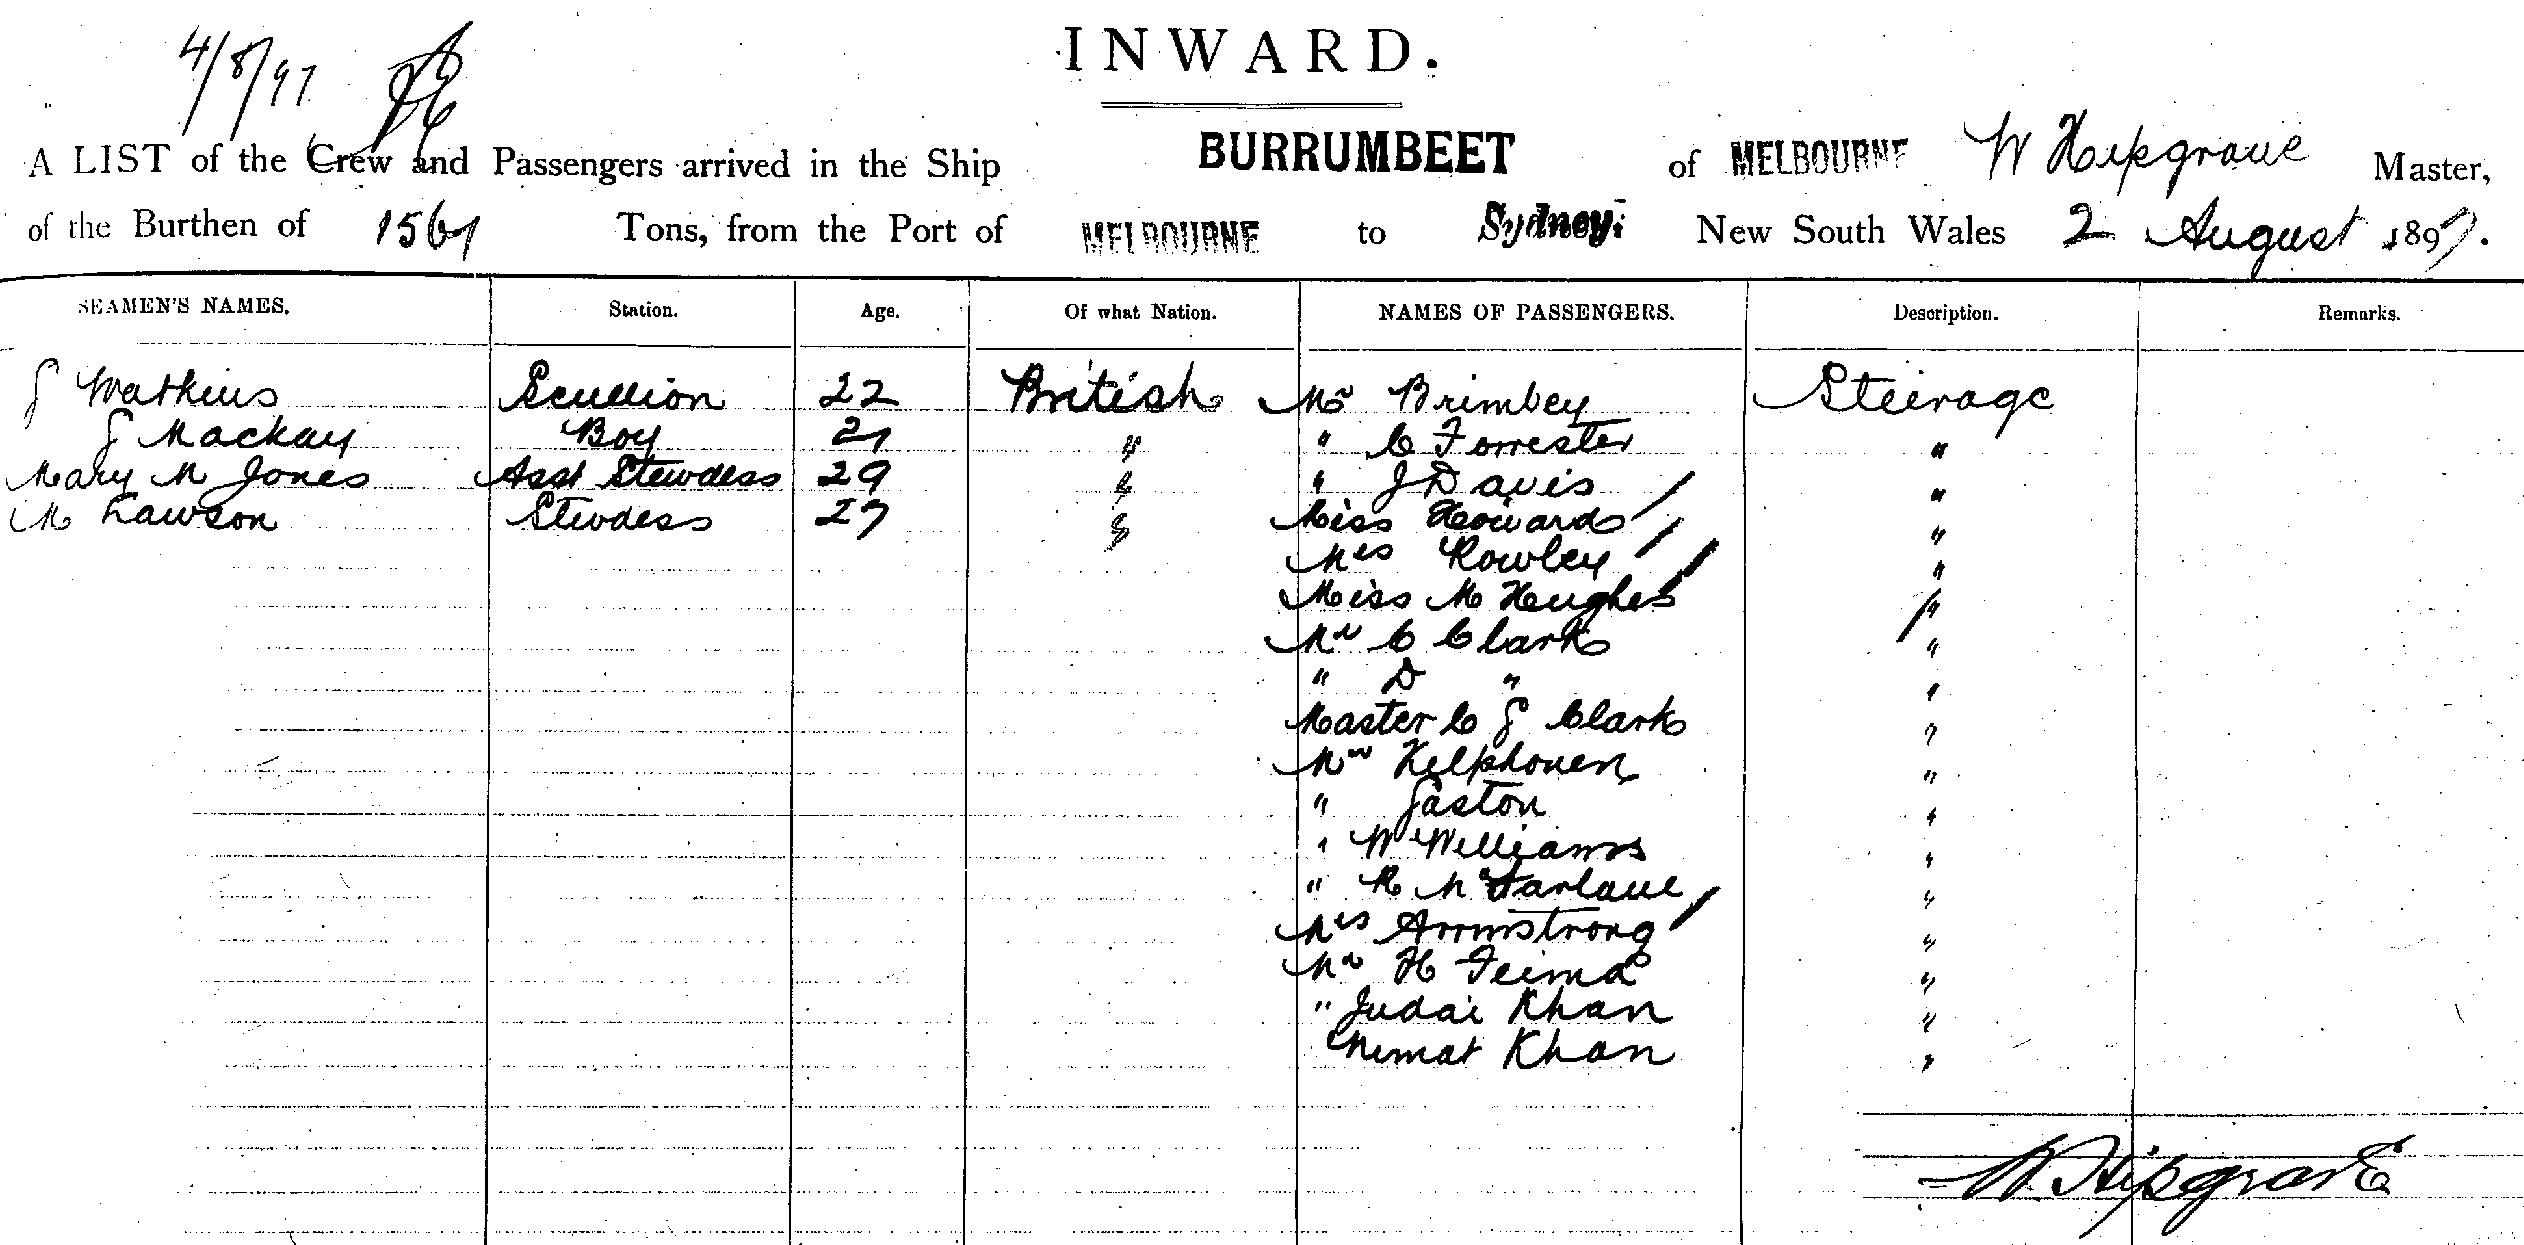 4/8/97
INWARD.
A LIST of the Crew and Passengers arrived in the Ship BURRUMBEET of MELBOURNE W Hipgrave Master,
of the Burthen of Tons, from the Port of MELBOURNE to Sydney. New South Wales 2 August 1897.
SEAMEN'S NAMES. Station. Age. Of what Nation. NAMES OF PASSENGERS. Description. Remarks.
J Watkins Scullion 22 British Mr Brimbey Steerage
J Mackay Boy 21 " " C Forrester "
Mary M Jones Asst Stewdess 29 " " J Davis "
M Lawson Stewdess 27 " Miss Howard "
Mrs Rowley "
Miss M Hughes "
Mr C Clark "
" D " "
Master C J Clark "
Mr "
" Gaston "
" W Williams "
" R McFarlane "
Mrs Armstrong "
Mr H "
" Judai Khan "
" Nimat Khan "
W. Hipgrave